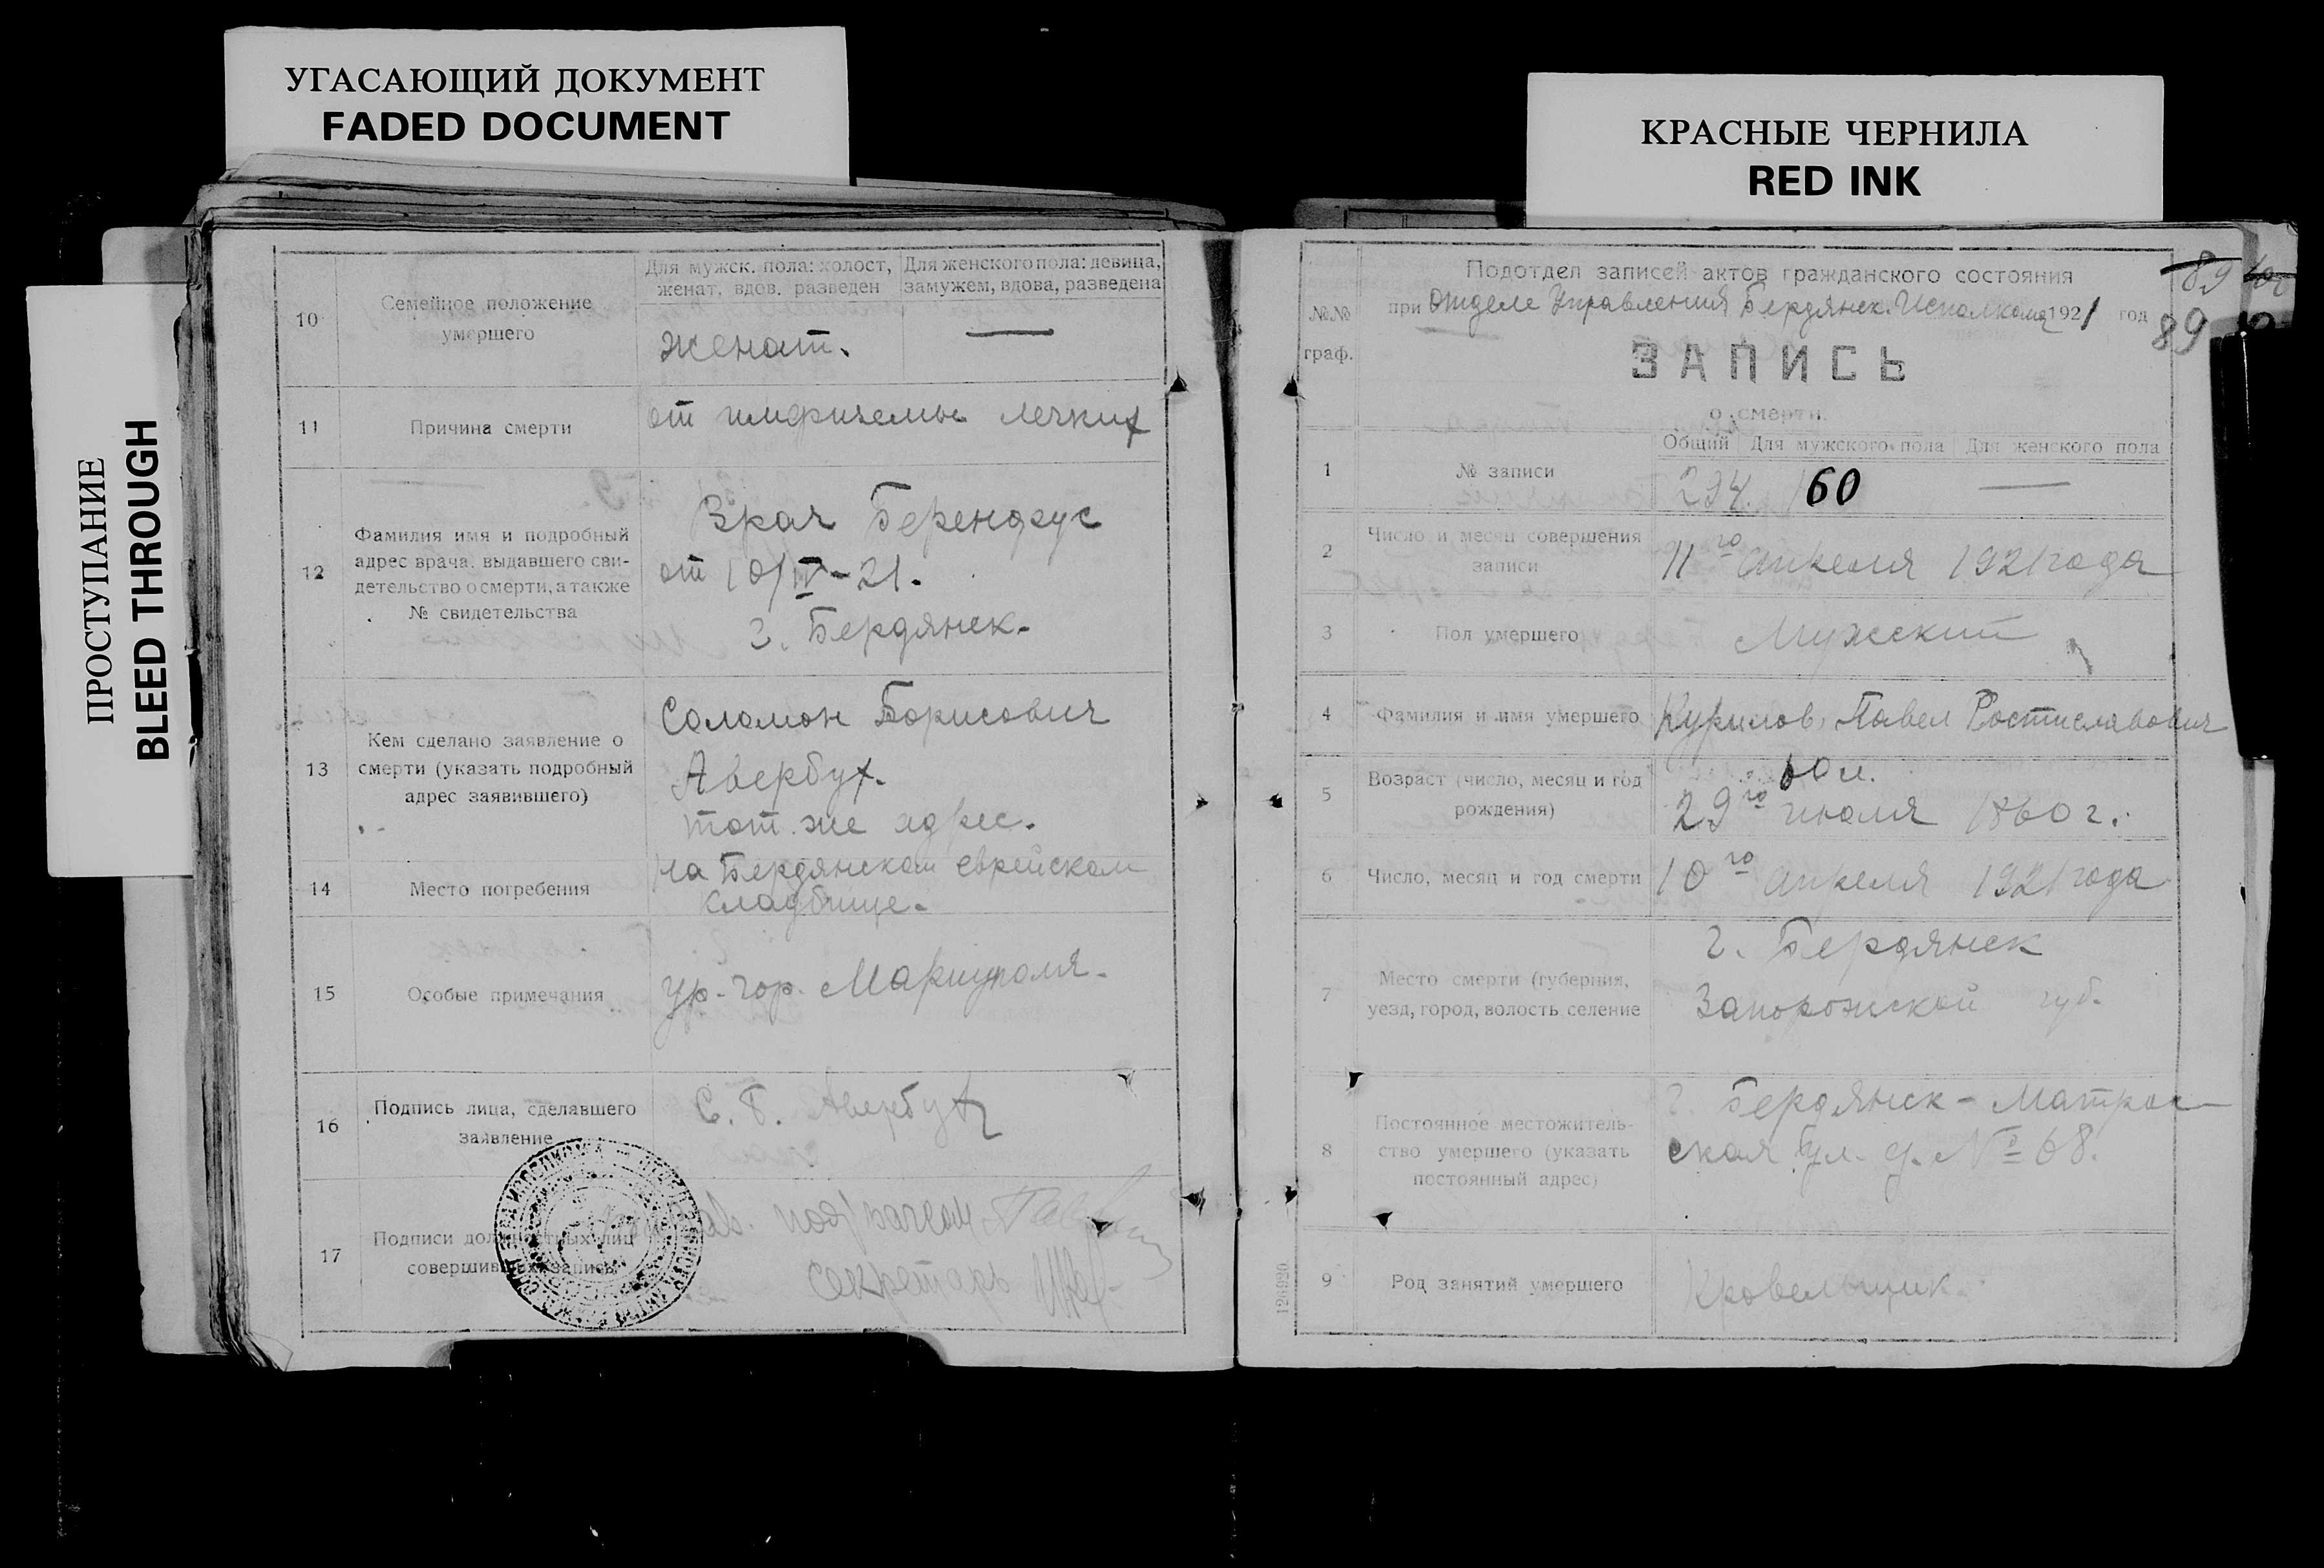 УГАСАЮЩИЙ ДОКУМЕНТ
FADED DOCUMENT
КРАСНЫЕ ЧЕРНИЛА
RED INK
ПРОСТУПАНИЕ
BLEED THROUGH
10
Семейное положение
умершего
Для мужск. пола: холост,
женат, вдов. разведен
Для женского пола: девица,
замужем, вдова, разведена
женат.
11
Причина смерти
от эмфиземы легких
12
Фамилия имя и подробный
адрес врача, выдавшего сви-
детельство о смерти, а также
№ свидетельства
Врач Берендус
от 10/IV-21.
г. Бердянск.
13
Кем сделано заявление о
смерти (указать подробный
адрес заявившего)
Соломон Борисович
Авербух.
тот же адрес.
14
Место погребения
на Бердянском еврейском
кладбище.
15
Особые примечания
ур. гор. Мариуполя.
16
Подпись лица, сделавшего
заявление
С. Б. Авербух
17
Подписи должностных лиц
совершивших запись
Секретарь
Подотдел записей актов гражданского состояния
№№
граф.
при Отделе Управления Бердянск. Исполкома 1921 год
89
89
ЗАПИСЬ
о смерти.
1
№ записи
Общий
Для мужского пола
Для женского пола
234. 160
2
Число и месяц совершения
записи
11го апреля 1921 года
3
Пол умершего
Мужский
4
Фамилия и имя умершего
Курилов, Павел Ростиславович
5
Возраст (число, месяц и год
рождения)
60 л.
29го июля 1860 г.
6
Число, месяц и год смерти
10го апреля 1921 года
7
Место смерти (губерния,
уезд, город, волость селение
г. Бердянск
Запорожской губ.
8
Постоянное местожитель-
ство умершего (указать
постоянный адрес)
г. Бердянск - Матрос-
ская ул. д. № 68.
9
Род занятий умершего
Кровельщик.
126920